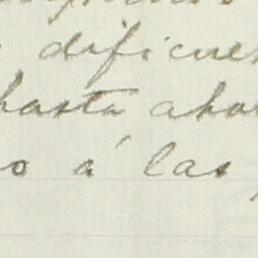 dificul
hasta aho
o á las